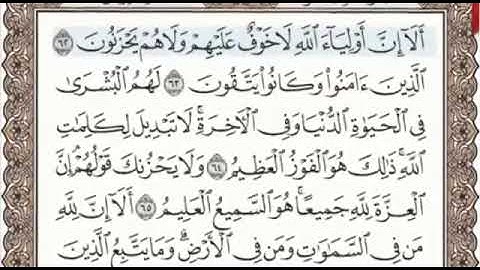 أَلَآ إِنَّ أَوْلِيَآءَ ٱللَّهِ لَا خَوْفٌ عَلَيْهِمْ وَلَا هُمْ يَحْزَنُونَ ٦٢
ٱلَّذِينَ ءَامَنُواْ وَكَانُواْ يَتَّقُونَ ٦٣ لَهُمُ ٱلْبُشْرَىٰ
فِى ٱلْحَيَوٰةِ ٱلدُّنْيَا وَفِى ٱلْأَخِرَةِ ۚ لَا تَبْدِيلَ لِكَلِمَٰتِ
ٱللَّهِ ۚ ذَٰلِكَ هُوَ ٱلْفَوْزُ ٱلْعَظِيمُ ٦٤ وَلَا يَحْزُنكَ قَوْلُهُمْ ۘ إِنَّ
ٱلْعِزَّةَ لِلَّهِ جَمِيعًا ۚ هُوَ ٱلسَّمِيعُ ٱلْعَلِيمُ ٦٥ أَلَآ إِنَّ لِلَّهِ
مَن فِى ٱلسَّمَٰوَٰتِ وَمَن فِى ٱلْأَرْضِ ۗ وَمَا يَتَّبِعُ ٱلَّذِينَ